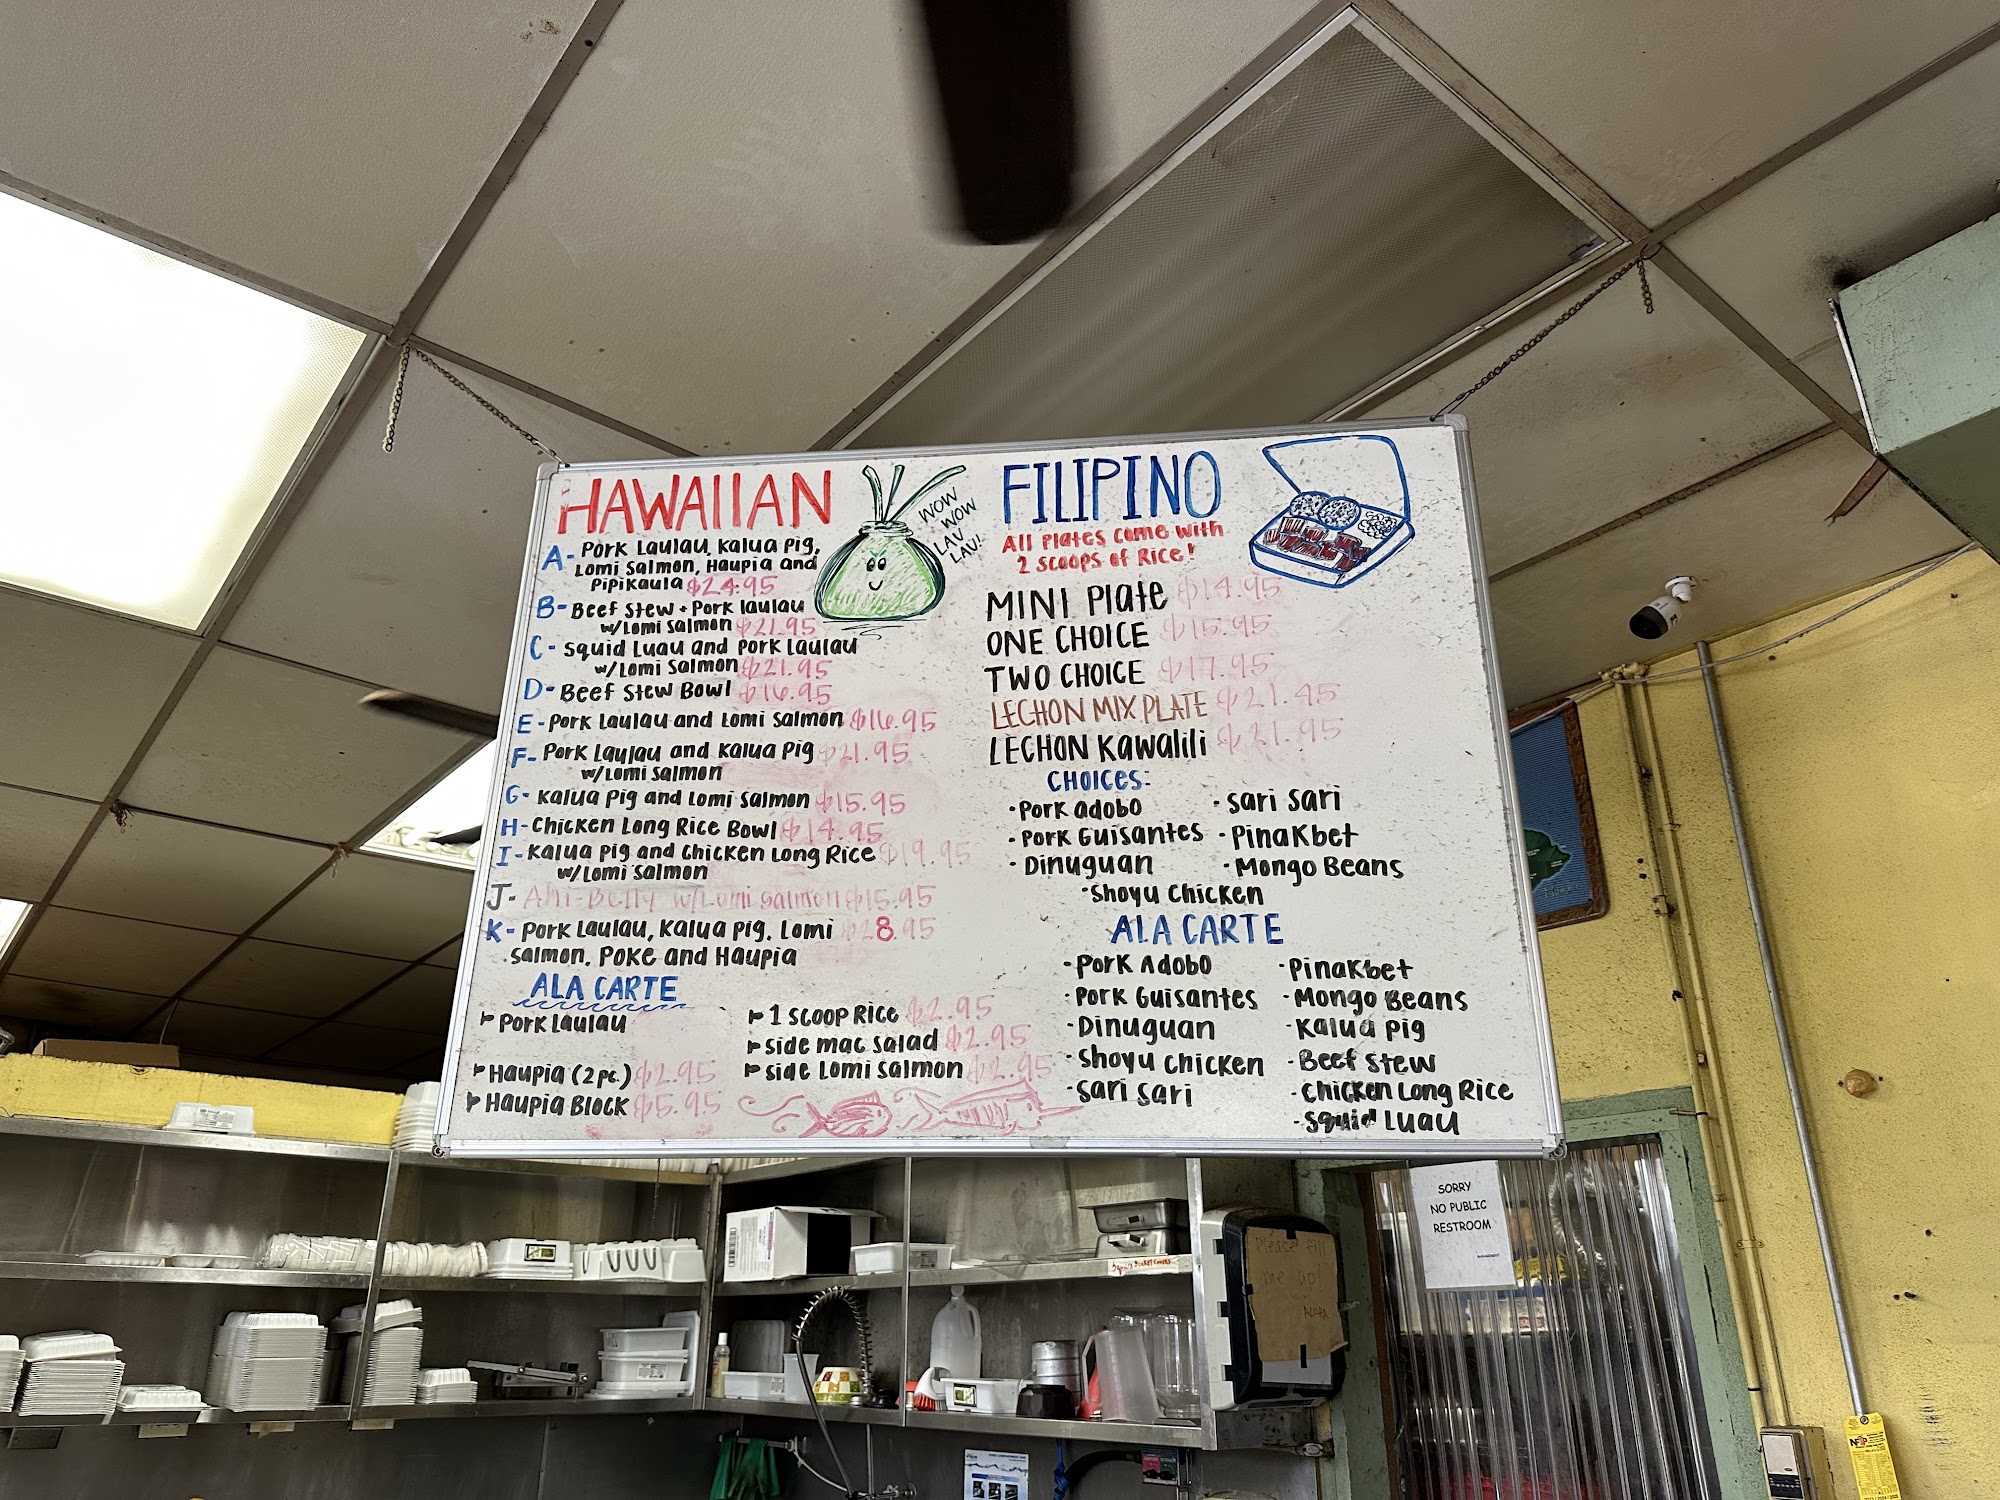 HAWAIIAN
A- Pork Laulau, Kalua Pig,
Lomi Salmon, Haupia and
Pipikaula $24.95
B- Beef Stew + Pork laulau
w/Lomi Salmon $21.95
C- Squid Luau and Pork Laulau
w/Lomi Salmon $21.95
D- Beef Stew Bowl $16.95
E- Pork Laulau and Lomi Salmon $16.95
F- Pork Laulau and Kalua Pig $21.95
w/Lomi Salmon
G- Kalua Pig and Lomi Salmon $15.95
H- Chicken Long Rice Bowl $14.95
I- Kalua Pig and Chicken Long Rice $19.95
w/Lomi Salmon
J- Ahi-Belly w/Lomi Salmon $15.95
K- Pork Laulau, Kalua Pig, Lomi $28.95
Salmon, Poke and Haupia
ALA CARTE
Pork Laulau
Haupia (2pc.) $2.95
Haupia Block $5.95
1 Scoop Rice $2.95
Side Mac Salad $2.95
Side Lomi Salmon $2.95
WOW
WOW
LAU
LAU!
FILIPINO
All Plates Come with
2 Scoops of Rice!
MINI Plate $14.95
ONE CHOICE $15.95
TWO CHOICE $17.95
LECHON MIX PLATE $21.95
LECHON Kawalili $21.95
CHOICES:
· Pork adobo
· Pork Guisantes
· Dinuguan
· Sari Sari
· Pinakbet
· Mongo Beans
· Shoyu Chicken
ALA CARTE
· Pork Adobo
· Pork Guisantes
· Dinuguan
· Shoyu Chicken
· Sari Sari
· Pinakbet
· Mongo Beans
· Kalua Pig
· Beef Stew
· Chicken Long Rice
· Squid Luau
SORRY
NO PUBLIC
RESTROOM
Please fill
me up!
ALOHA